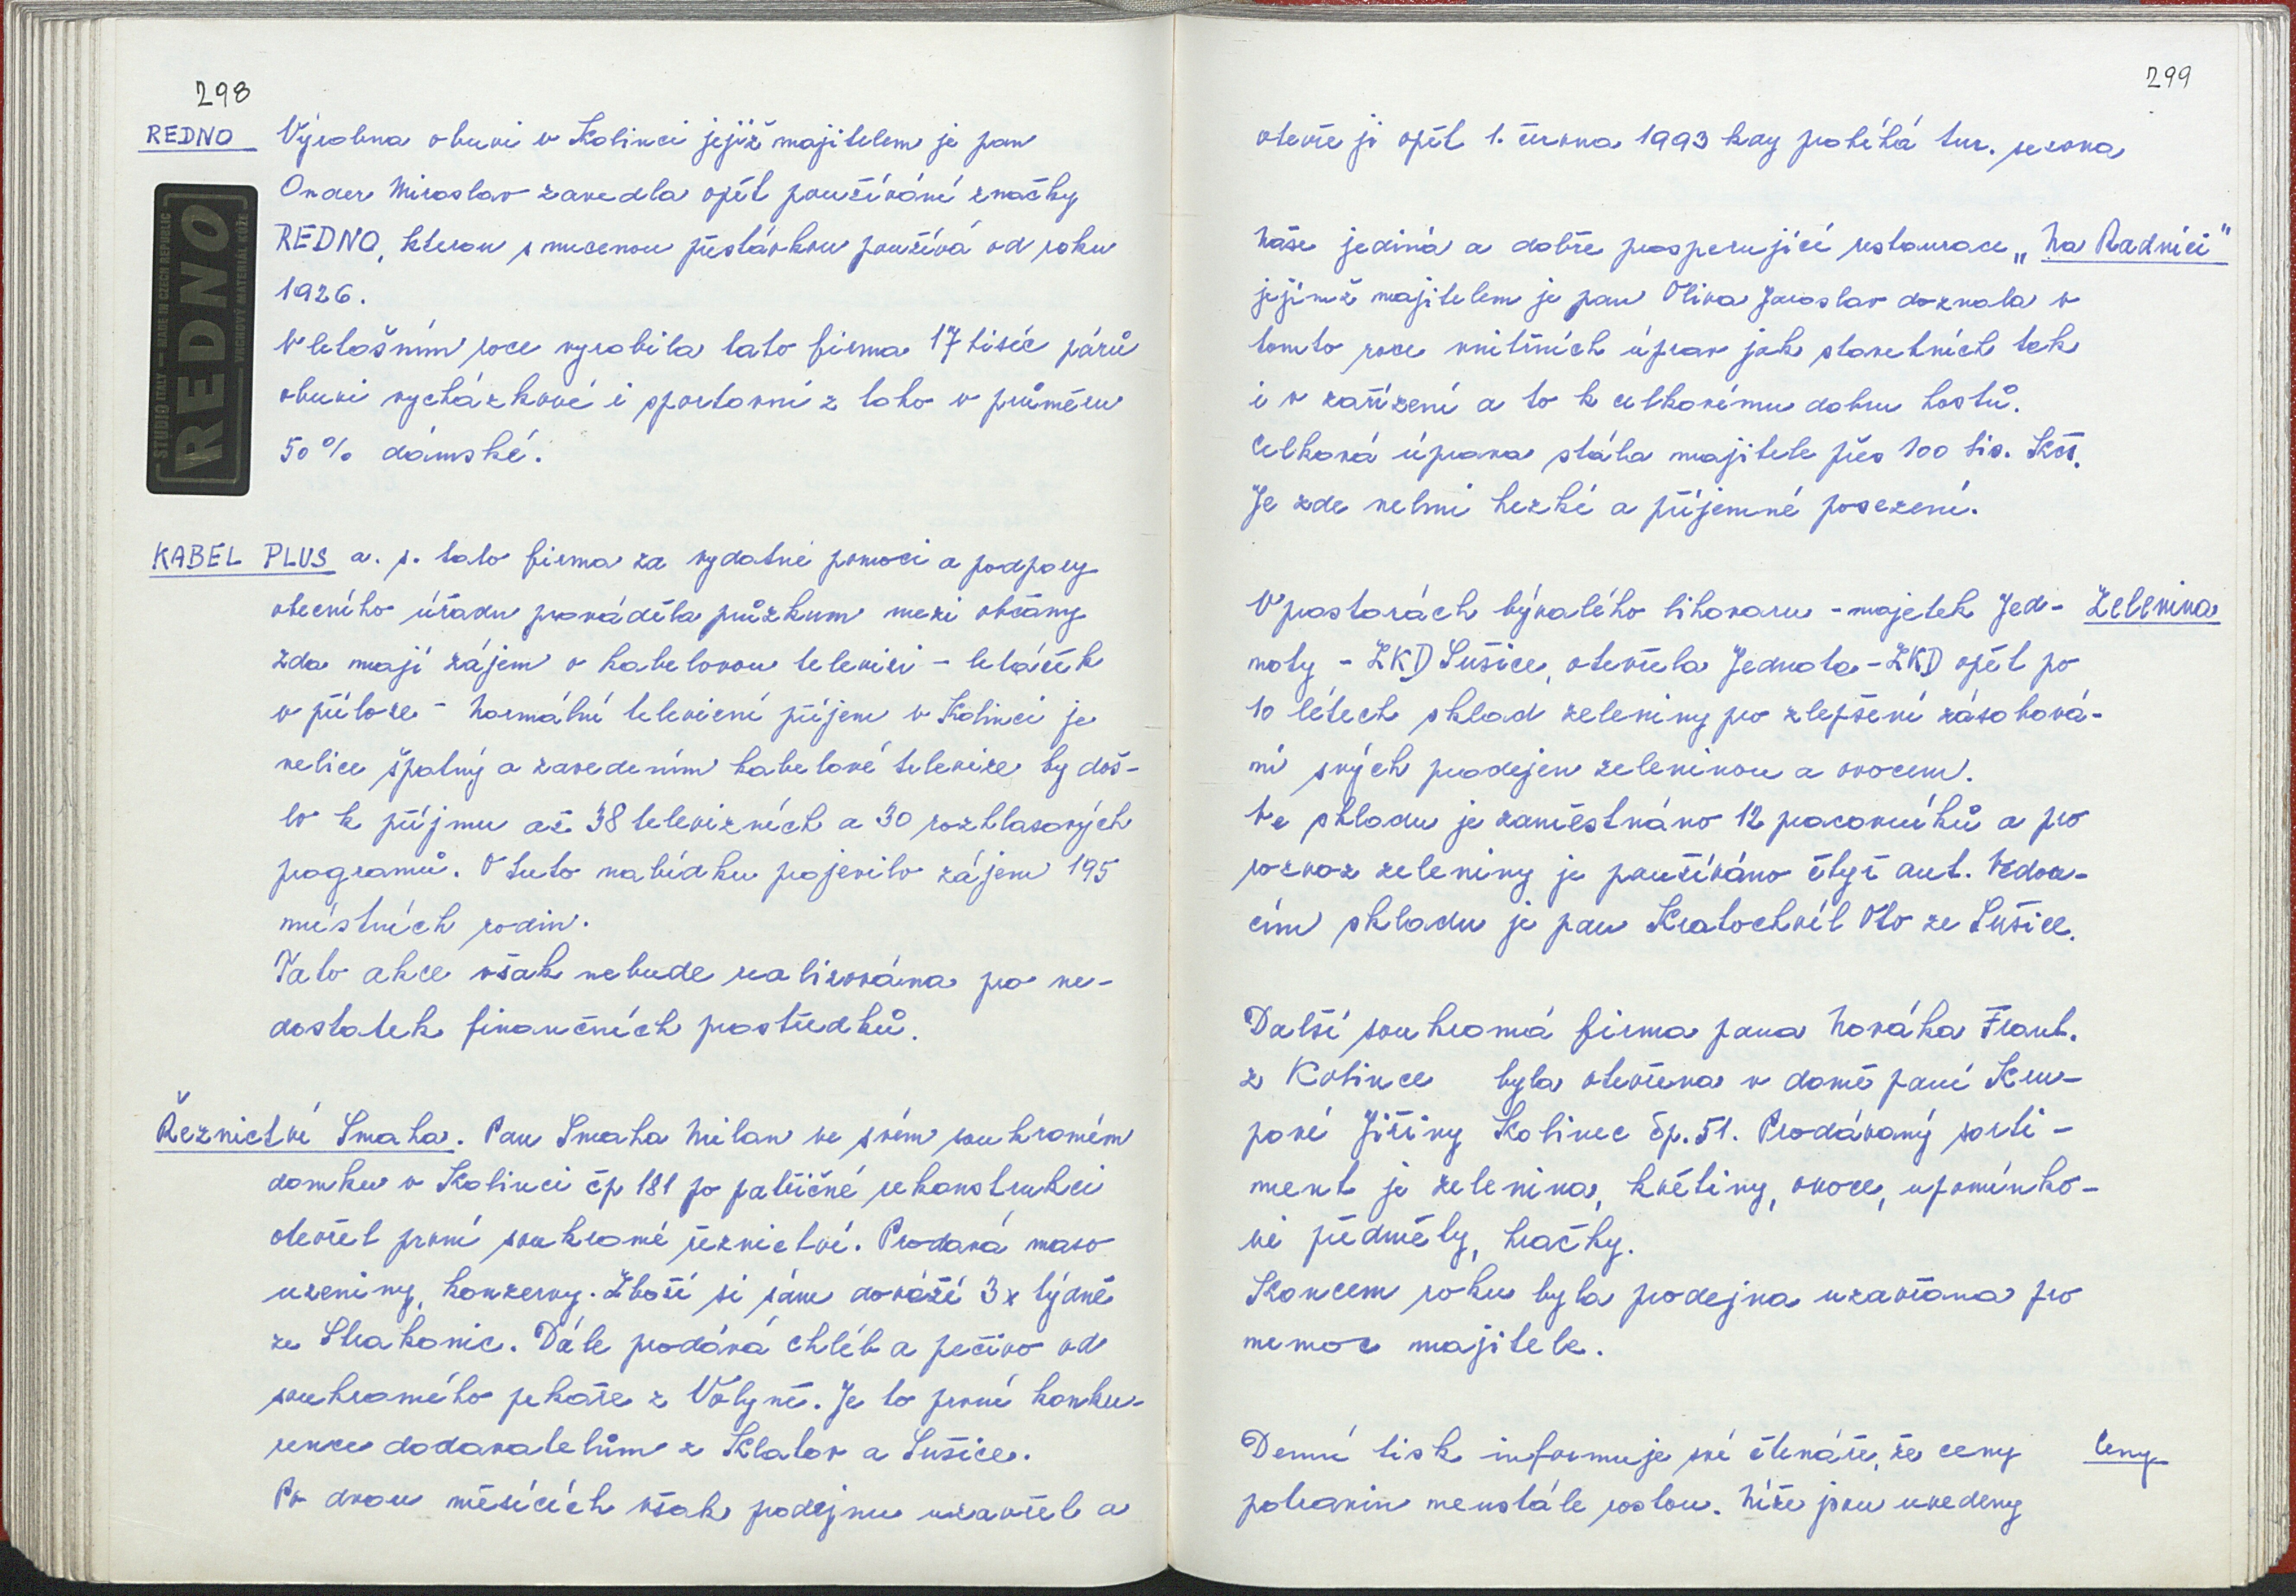 298
REDNO Výrobna obuvi v Kolinci jejíž majitelem je pan
Onder Miroslav zavedla opět používání značky
REDNO, kterou s nucenou přestávkou používá od roku
1926.
V letošním roce vyrobila tato firma 17 tisíc párů
obuvi vycházkové i sportovní z toho v průměru
50% dámské.
STUDIO ITALY — MADE IN CZECH REPUBLIC
REDNO
VRCHOVÝ MATERIÁL KŮŽE
KABEL PLUS a. s. tato firma za vydatné pomoci a podpory
obecního úřadu prováděla průzkum mezi občany
zda mají zájem o kabelovou televizi - letáček
v příloze - Normální televizní příjem v Kolinci je
velice špatný a zavedením kabelové televize by doš-
lo k příjmu až 38 televizních a 30 rozhlasových
programů. O tuto nabídku projevilo zájem 195
místních rodin.
Tato akce však nebude realizována pro ne-
dostatek finančních prostředků.
Řeznictví Smaha. Pan Smaha Milan ve svém soukromém
domku v Kolinci čp 181 po patřičné rekonstrukci
otevřel první soukromé řeznictví. Prodává maso
uzeniny, konzervy. Zboží si sám dováží 3x týdně
ze Strakonic. Dále prodává chléb a pečivo od
soukromého pekaře z Volyně. Je to první konku-
rence dodavatelům z Klatov a Sušice.
Po dvou měsících však prodejnu uzavřel a
299
otevře ji opět 1. června 1993 kdy probíhá tur. sezona
Naše jediná a dobře prosperující restaurace „Na Radnici"
jejímž majitelem je pan Oliva Jaroslav doznala v
tomto roce vnitřních úprav jak stavebních tak
i v zařízení a to k celkovému dobru hostů.
Celková úprava stála majitele přes 100 tis. Kčs.
Je zde velmi hezké a příjemné posezení.
V prostorách bývalého lihovaru - majetek Jed- Zelenina
noty - ZKD Sušice, otevřela Jednota - ZKD opět po
10 létech sklad zeleniny pro zlepšení zásobová-
ní svých prodejen zeleninou a ovocem.
Ve skladu je zaměstnáno 12 pracovníků a pro
rozvoz zeleniny je používáno čtyř aut. Vedou-
cím skladu je pan Kratochvíl Oto ze Sušice.
Další soukromá firma pana Nováka Frant.
z Kolince byla otevřena v domě paní Kru-
pové Jiřiny Kolinec čp. 51. Prodávaný sorti-
ment je zelenina, květiny, ovoce, upomínko-
vé předměty, hračky.
Koncem roku byla prodejna uzavřena pro
nemoc majitele.
Denní tisk informuje své čtenáře, že ceny Ceny
potravin neustále rostou. Níže jsou uvedeny